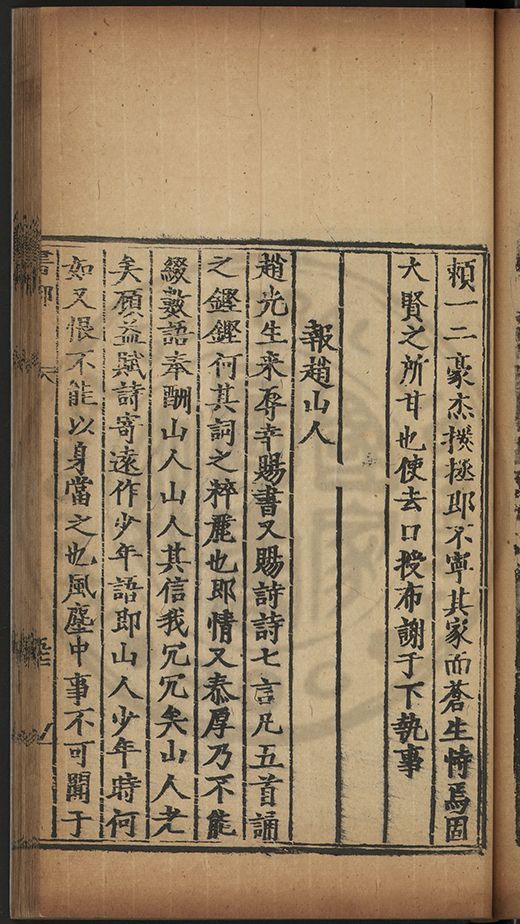 頼一二豪杰撲極耶不寧其家而蒼生恃焉固
大賢之所甘也使去口授布謝于下執事
報趙山人
趙光生来辱幸賜書又賜詩詩七言凡五首誦
之鏗鏗何其詞之粹麗也即情又泰厚乃不能
綴數語奉酬山人山人其信我冗冗矣山人老
矣碩益賦詩寄遠作少年語即山人少年時何
如又恨不能以身當之也風塵中事不可聞于